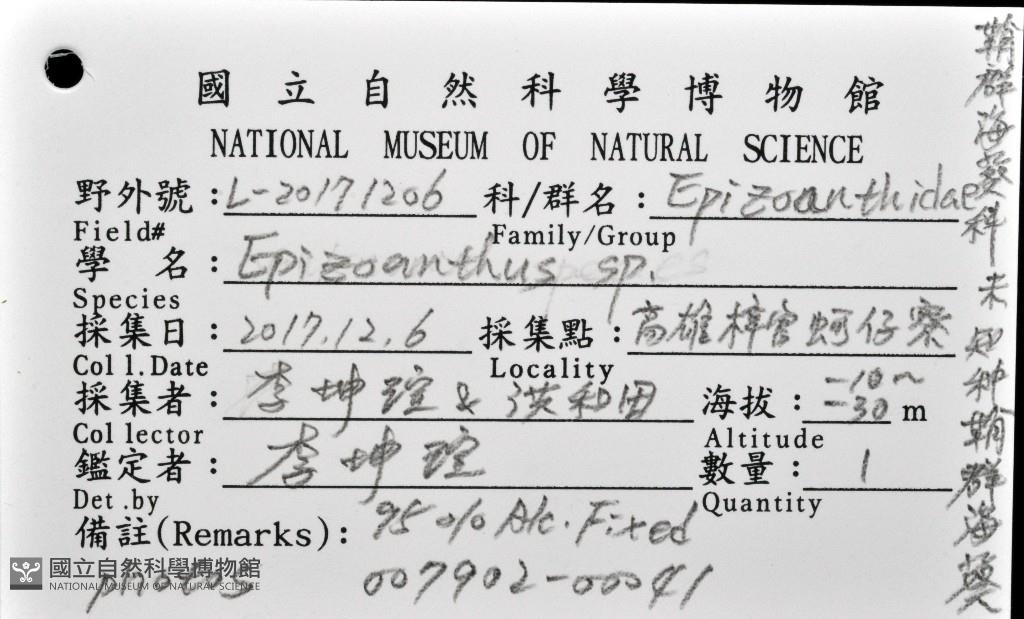 國立自然科學博物館
NATIONAL MUSEUM OF NATURAL SCIENCE
野外號：L-20171206 科/群名：Epizoanthidae
Field# Family/Group
學 名：Epizoanthus sp.
Species
採集日：2017.12.6 採集點：高雄梓官蚵仔寮
Coll.Date Locality
採集者：李坤瑄 & 洪和田 海拔：-10~-30 m
Collector Altitude
鑑定者：李坤瑄 數量：1
Det.by Quantity
備註(Remarks)：95% Alc. Fixed
photos 007902-00041
鞘群海葵科未知种鞘群海葵
國立自然科學博物館
NATIONAL MUSEUM OF NATURAL SCIENCE